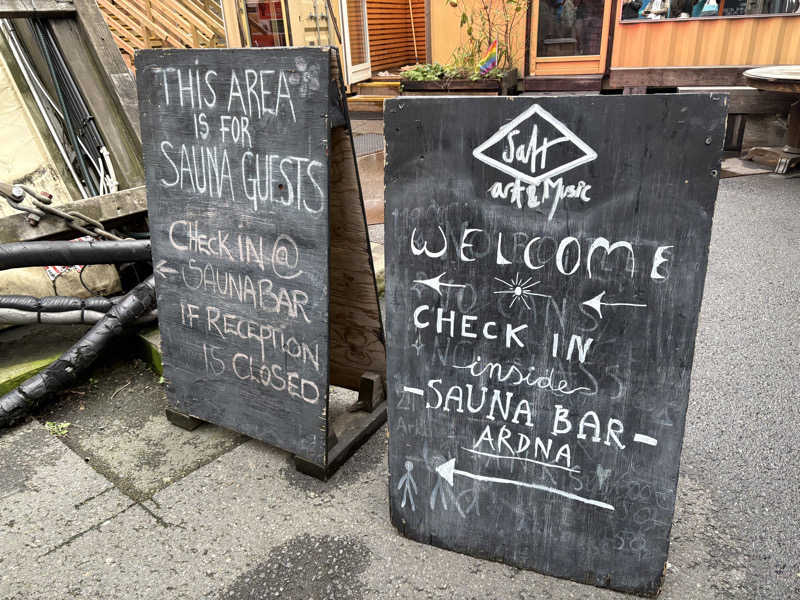 THIS AREA
IS FOR
SAUNA GUESTS
CHECK IN @
SAUNA BAR
IF RECEPTION
IS CLOSED
Salt
art & Music
WELCOME
CHECK IN
inside
-SAUNA BAR-
ARDNA